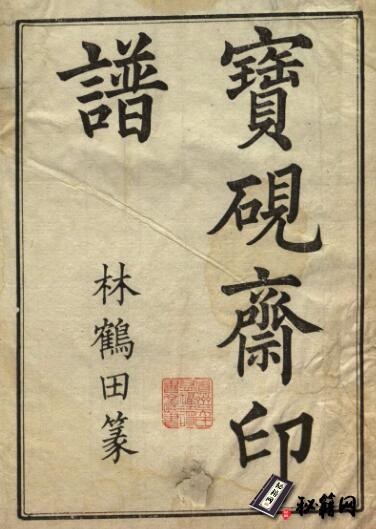 寶硯齋印
譜
林鶴田篆
秘籍网
秘籍网